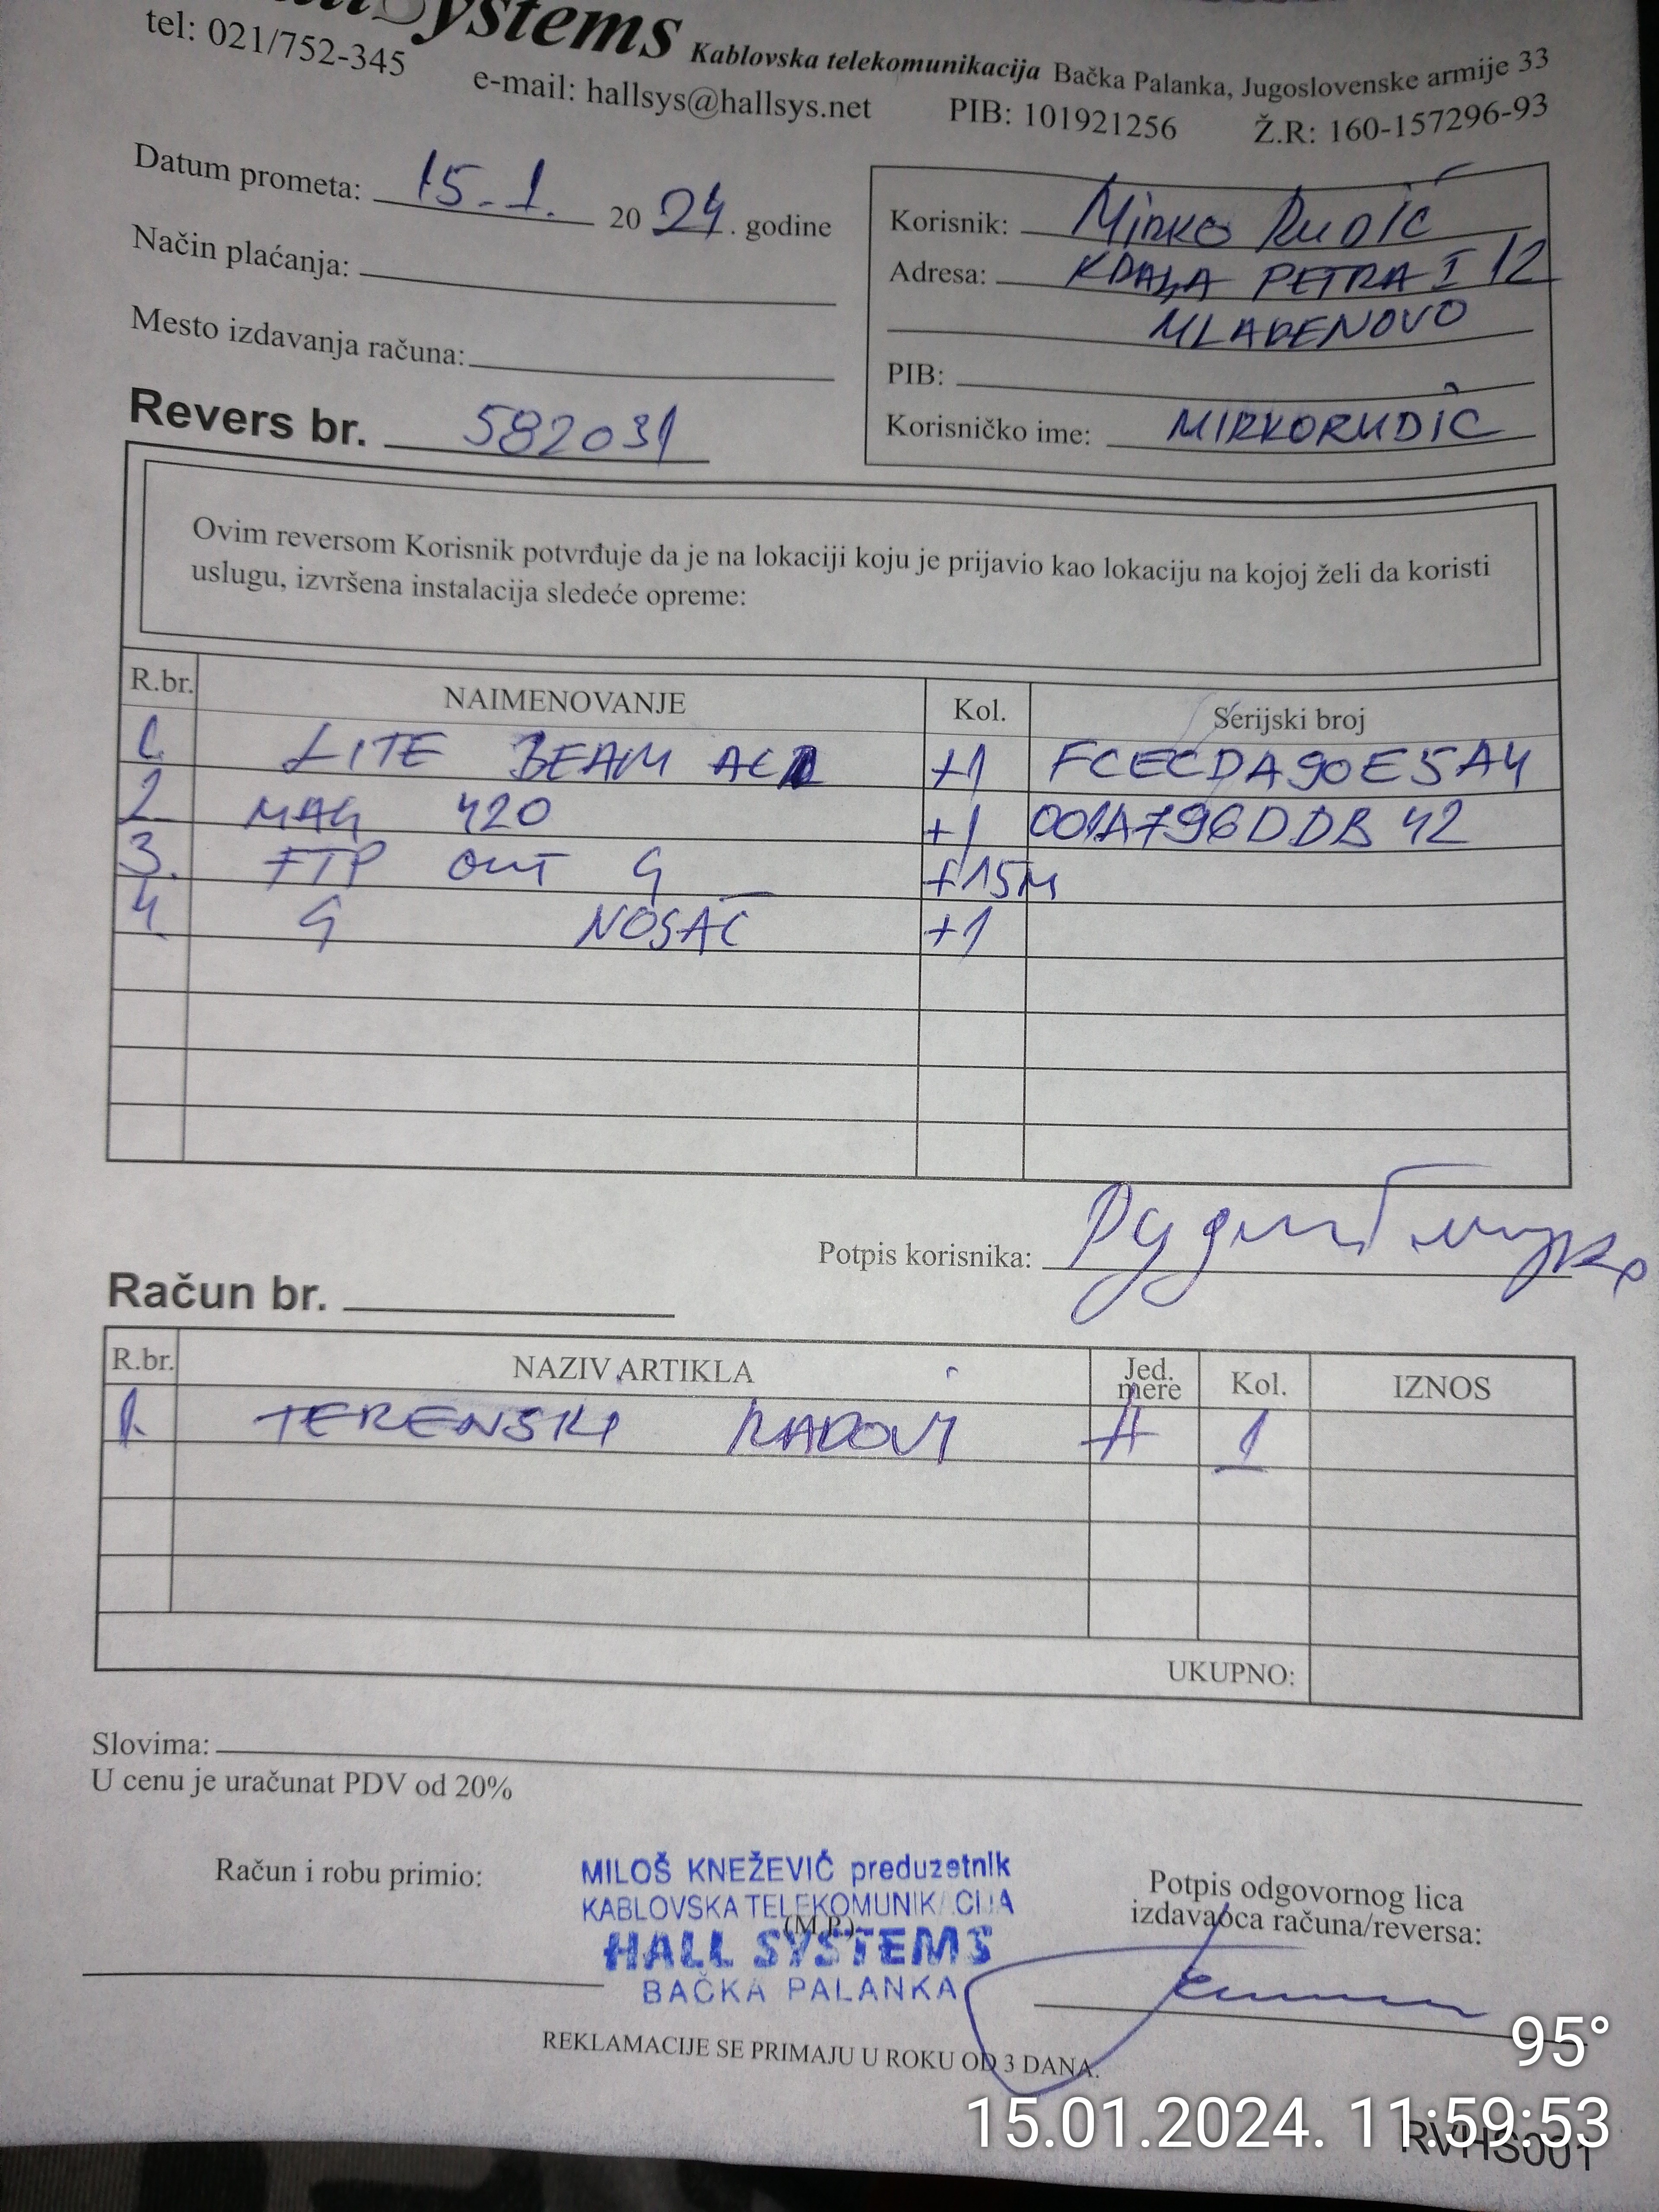 Systems Kablovska telekomunikacija Bačka Palanka, Jugoslovenske armije 33
tel: 021/752-345 e-mail: hallsys@hallsys.net PIB: 101921256 Ž.R: 160-157296-93
Datum prometa: 15.1. 2024. godine
Način plaćanja:
Mesto izdavanja računa:
Revers br. 582031
Korisnik: Mirko Rudić
Adresa: KRALJA PETRA I 12
MLADENOVO
PIB:
Korisničko ime: MIRKORUDIC
Ovim reversom Korisnik potvrđuje da je na lokaciji koju je prijavio kao lokaciju na kojoj želi da koristi
uslugu, izvršena instalacija sledeće opreme:
R.br. NAIMENOVANJE Kol. Serijski broj
1. LITE BEAM +1 FCECDA90E5A4
2. MAG 420 +1 001A796DDB42
3. FTP OUT G +15M
4. G NOSAČ +1
Potpis korisnika: Рудић Мирко
Račun br.
R.br. NAZIV ARTIKLA Jed. mere Kol. IZNOS
1. TERENSKI RADOVI H 1
UKUPNO:
Slovima:
U cenu je uračunat PDV od 20%
Račun i robu primio:
MILOŠ KNEŽEVIĆ preduzetnik
KABLOVSKA TELEKOMUNIKACIJA
(M.P.)
HALL SYSTEMS
BAČKA PALANKA
Potpis odgovornog lica
izdavaoca računa/reversa:
REKLAMACIJE SE PRIMAJU U ROKU OD 3 DANA.
95°
15.01.2024. 11:59:53
RVHS001